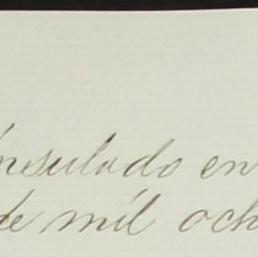 nsulado en
de mil och